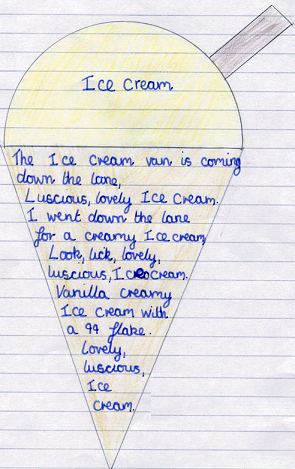 Ice Cream
The Ice Cream van is coming
down the lane,
Luscious, lovely Ice Cream.
I went down the lane
for a creamy Ice cream
Look, lick, lovely,
luscious, Icecream.
Vanilla creamy
Ice Cream with
a 99 flake.
Lovely,
luscious,
Ice
cream.